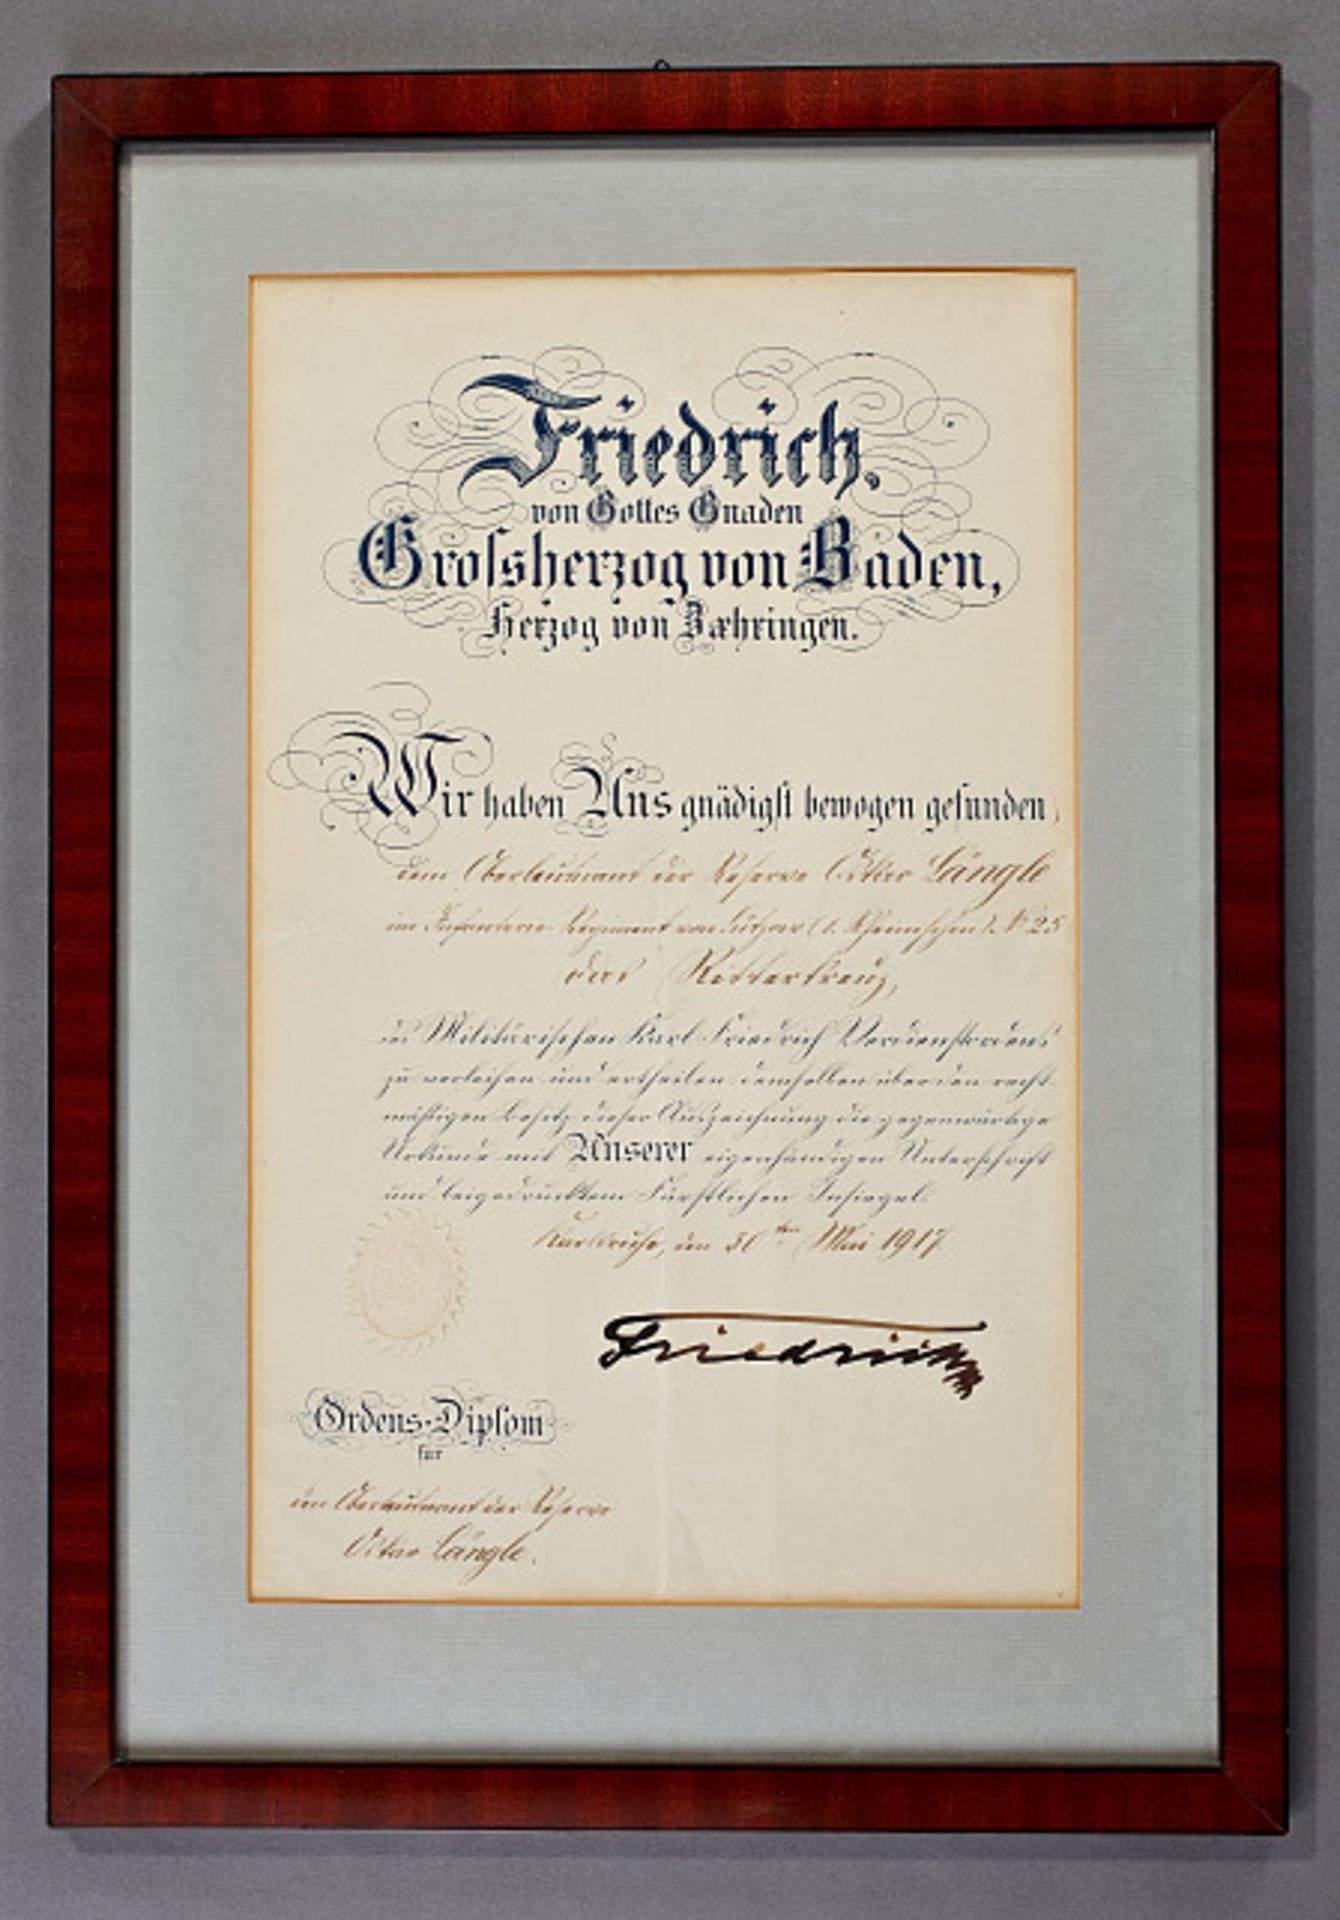 Friedrich,
von Gottes Gnaden
Grosſsherzog von Baden,
Herzog von Zæhringen.
Wir haben Uns gnädigſt bewogen gefunden,
dem Oberleutnant der Reserve Längle
im Infanterie-Regiment von Lützow (1. Rheinischen) Nr 25
das Ritterkreuz
des Militärischen Karl-Friedrich-Verdienstordens
zu verleihen und ertheilen demselben über den recht-
mäßigen Besitz dieser Auszeichnung die gegenwärtige
Urkunde mit Unserer eigenhändigen Unterschrift
und beigedrucktem Fürstlichen Insiegel.
Karlsruhe, den 30ten Mai 1917
Friedrich
Ordens-Diplom
für
den Oberleutnant der Reserve
Längle.